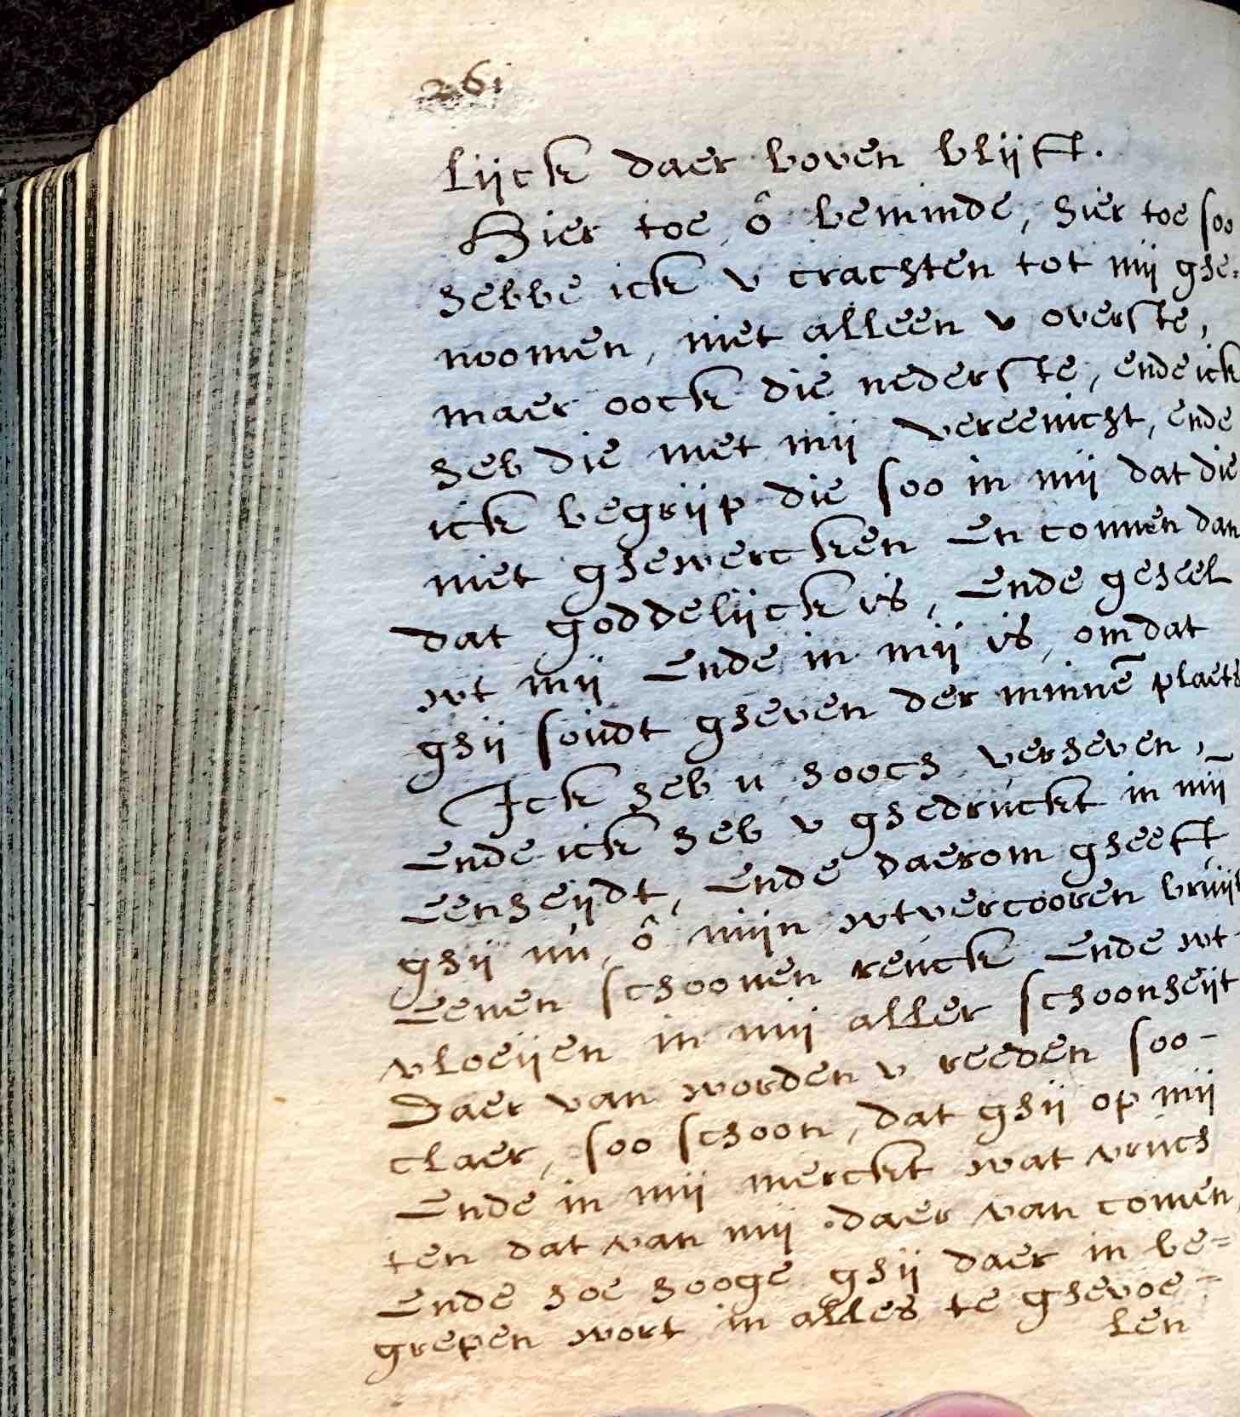 261
lijck daer boven blijft.
Hier toe, ô beminde, hier toe soo
hebbe ick v crachten tot mij ghe=
noomen, niet alleen v overste,
maer oock die nederste, ende ick
heb die met mij vereenicht, ende
ick begrijp die soo in mij dat die
niet ghewercken en connen dan
dat goddelijck is, ende geheel
wt mij ende in mij is, om dat
ghij soudt gheven der minnē plaets
Ick heb u hooch verheven,
ende ick heb v ghedruckt in mij
eenheijdt, ende daerom gheeft
ghij nu, ô mijn wtvercooren bruijt
eenen schoonen reuck ende wt
vloeijen in mij aller schoonheijt
Daer van worden v reeden soo-
claer, soo schoon, dat ghij op mij
ende in mij merckt wat vruch
ten dat van mij daer van comen,
ende hoe hooge ghij daer in be=
grepen wort in alles te ghevoe=
len